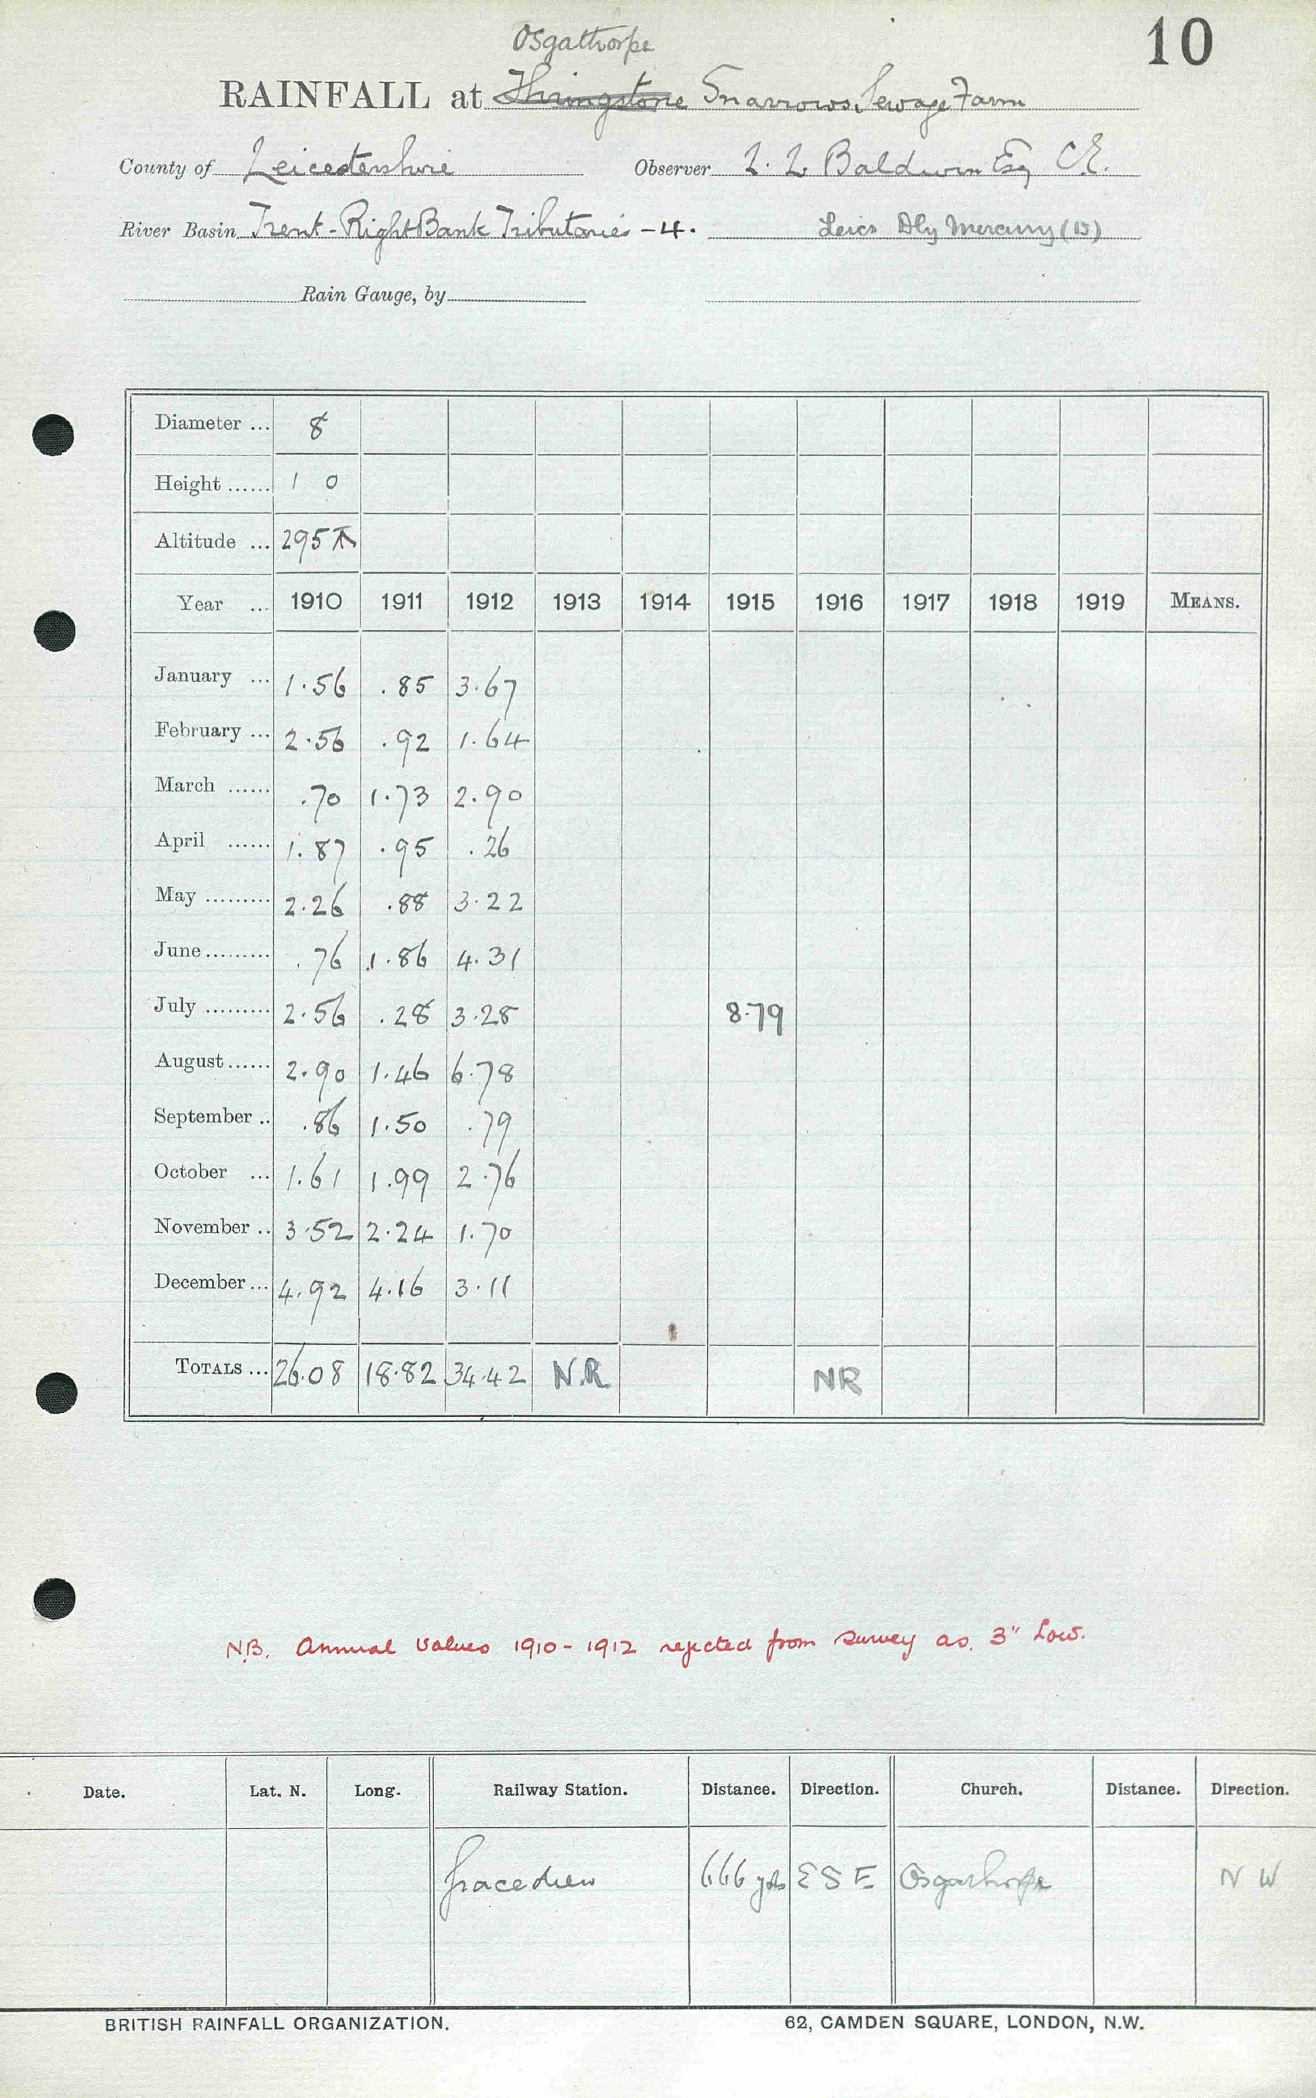 10
Osgathorpe
RAINFALL at Thringstone Snarrows Sewage Farm
County of Leicestershire Observer L. L. Baldwin Esq C.E.
River Basin Trent - Right Bank Tributaries - 4. Leics Dly Mercury (15)
Rain Gauge, by
Diameter ... 8
Height ...... 1 0
Altitude ... 295
Year ... 1910 1911 1912 1913 1914 1915 1916 1917 1918 1919 MEANS.
January ... 1.56 .85 3.67
February ... 2.56 .92 1.64
March ...... .70 1.73 2.90
April ...... 1.87 .95 .26
May ......... 2.26 .88 3.22
June ......... .76 1.86 4.31
July ......... 2.56 .28 3.28 8.79
August ...... 2.90 1.46 6.78
September .. .86 1.50 .79
October ... 1.61 1.99 2.76
November .. 3.52 2.24 1.70
December ... 4.92 4.16 3.11
TOTALS ... 26.08 18.82 34.42 N.R. NR
N.B. Annual values 1910-1912 rejected from survey as 3" low.
Date. Lat. N. Long. Railway Station. Distance. Direction. Church. Distance. Direction.
Gracedieu 666 yds ESE Osgathorpe NW
BRITISH RAINFALL ORGANIZATION. 62, CAMDEN SQUARE, LONDON, N.W.